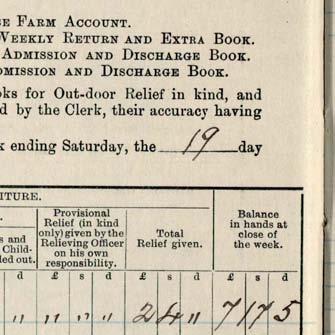 SE FARM ACCOUNT.
WEEKLY RETURN AND EXTRA BOOK.
ADMISSION AND DISCHARGE BOOK.
DMISSION AND DISCHARGE BOOK.
oks for Out-door Relief in kind, and
d by the Clerk, their accuracy having
k ending Saturday, the 19 day
ITURE.
s and Child- led out.
Provisional Relief (in kind only) given by the Relieving Officer on his own responsibility.
Total Relief given.
Balance in hands at close of the week.
d £ s d £ s d £ s d
" " " " 2 4 " 7 17 5